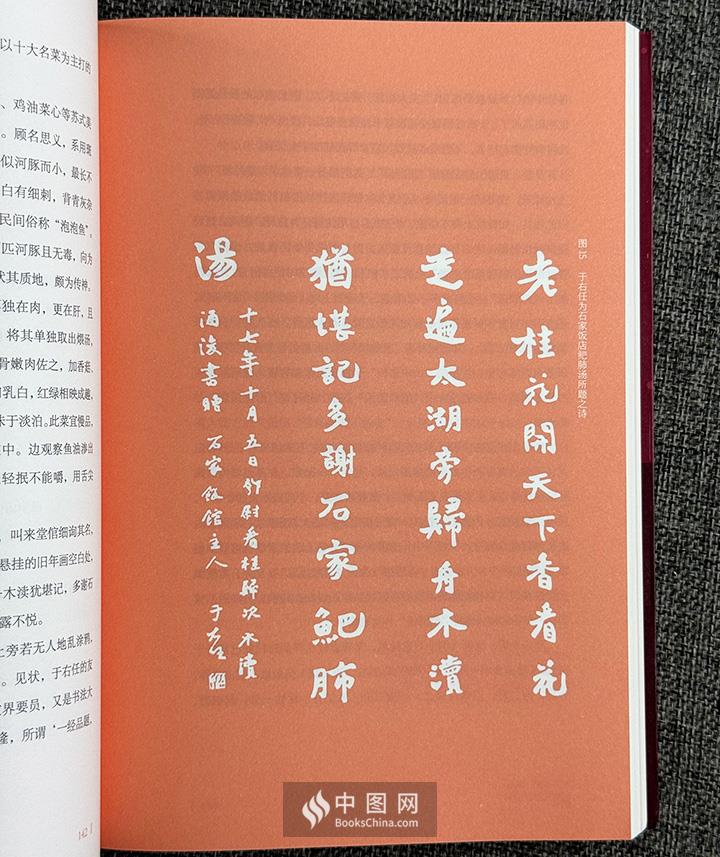 以十大名菜为主打的
、鸡油菜心等苏式美
。顾名思义，系用斑
似河豚而小，最长不
白有细刺，背青灰杂
民间俗称“泡泡鱼”。
匹河豚且无毒，向为
状其质地，颇为传神。
独在肉，更在肝，且
将其单独取出煨汤，
骨嫩肉佐之，加香菇、
乳白，红绿相映成趣，
味于淡泊。此菜宜慢品，
中。边观察鱼油渗出
轻抿不能嚼，用舌尖
，叫来堂倌细询其名，
悬挂的旧年画空白处，
木渎犹堪记，多谢石
露不悦。
上旁若无人地乱涂鸦，
。见状，于右任的友
界要员，又是书法大
隆，所谓‘一经品题，
142
图15 于右任为石家饭店鲃肺汤所题之诗
老桂花開天下香看花
走遍太湖旁歸舟木瀆
猶堪記多謝石家䰾肺
湯
十七年十月五日鄧尉看桂歸次木瀆
酒後書贈 石家飯館主人 于右任
中图网
BooksChina.com